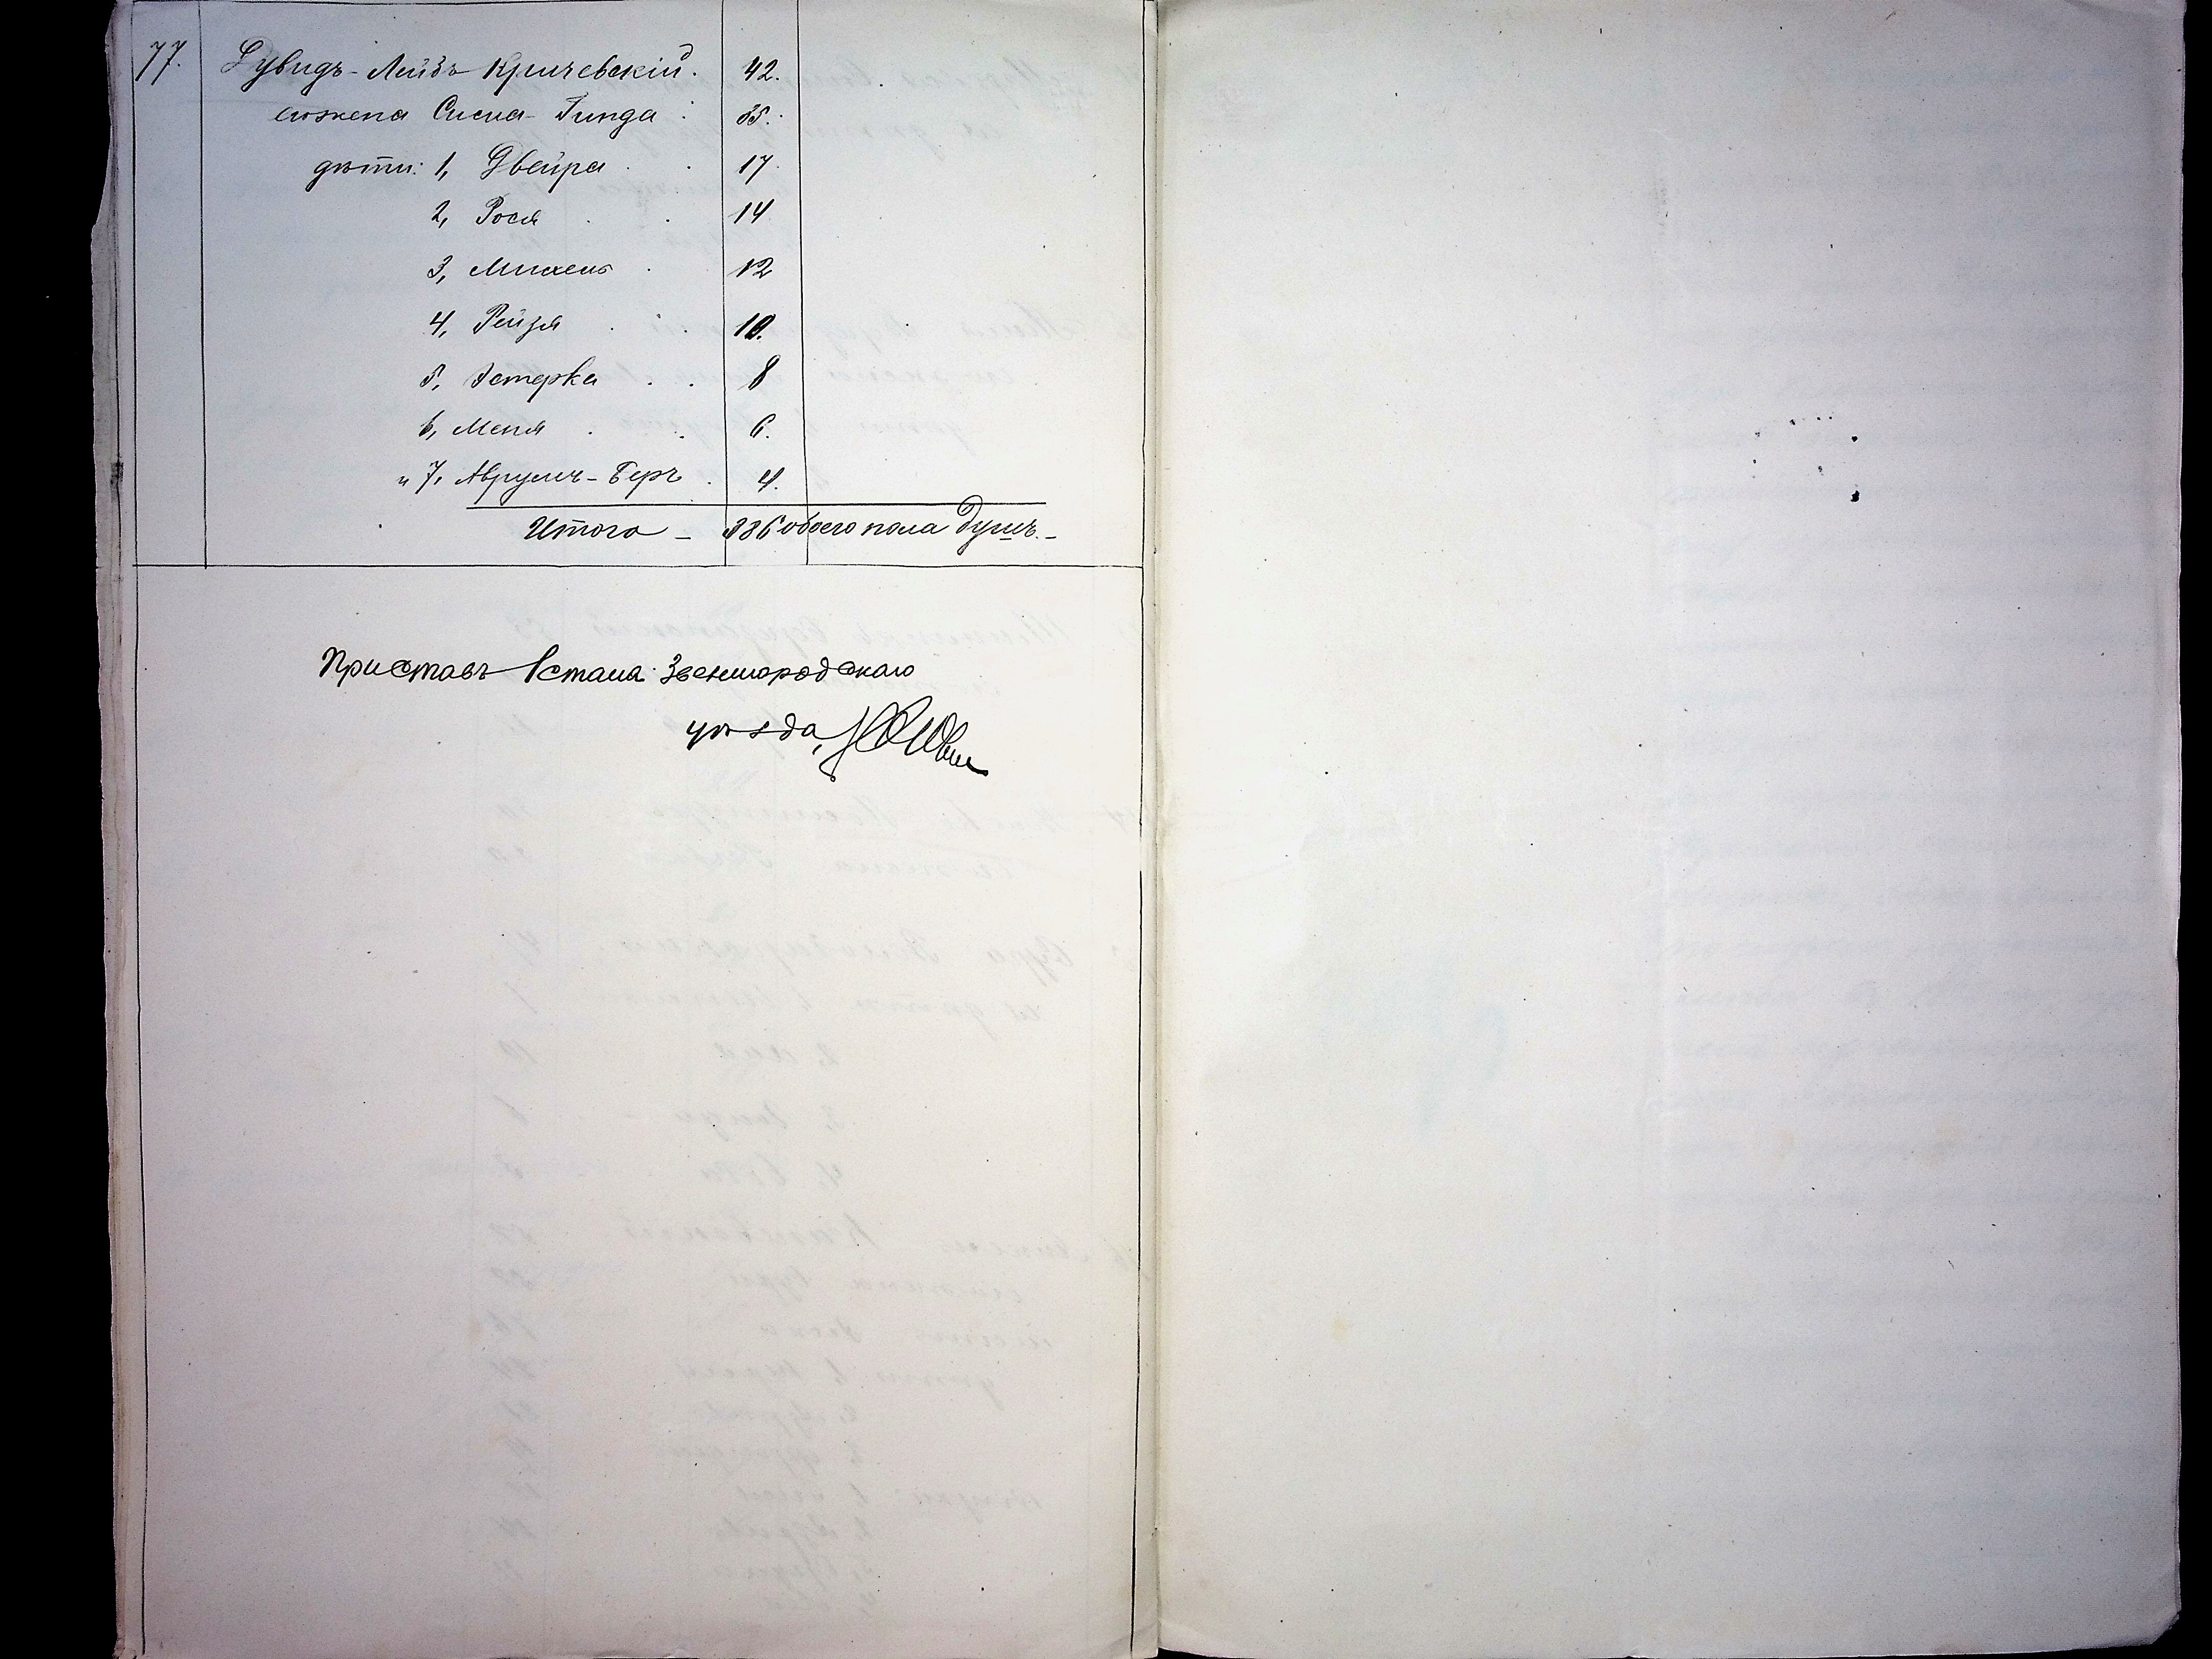 77. Дувидъ-Лейбъ Кричевскій. 42.
его жена Сисна-Гинда 35.
дѣти: 1, Двейра 17
2, Рося 14
3, Михель 12
4, Рейзя 10.
5, Эстерка 8
6, Меня 6.
и 7, Аврумъ-Беръ 4.
Итого – 336 обоего пола душъ. –
Приставъ 1 стана Звенигородскаго
уѣзда,